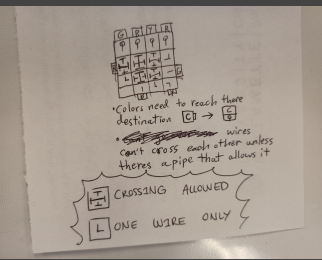 G B Y R
•Colors need to reach there
destination C → C
• wires
can't cross each other unless
theres a pipe that allows it
CROSSING ALLOWED
L ONE WIRE ONLY